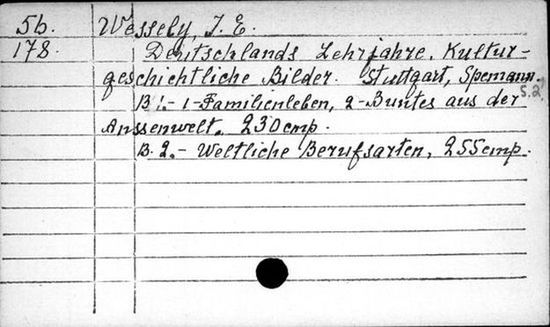 5b. Wessely, J. E.
178. Deutschlands Lehrjahre. Kultur-
geschichtliche Bilder. Stuttgart, Spemann.
S.2
B 1.- 1-Familienleben, 2-Buntes aus der
Aussenwelt. 230cmp.
B. 2.- Weltliche Berufsarten, 255cmp.